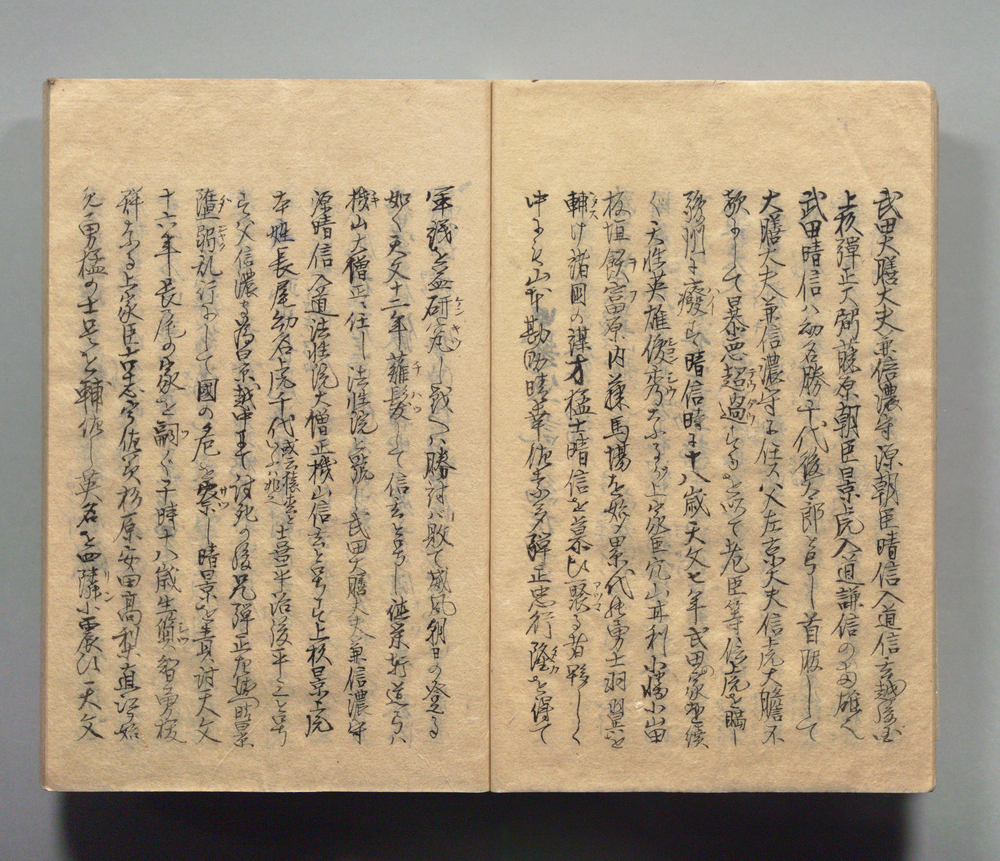 武田大膳大夫兼信濃守源朝臣晴信入道信玄越後国
上杦彈正大弼藤原朝臣景虎入道謙信の両雄人
武田晴信ハ幼名勝千代後太郎と号し首服して
大膳大夫兼信濃守ニ任ス父左京大夫信虎大膽不
敵にして暴悪超過するを以て老臣等信虎を瞞し
駿州に癈す晴信時に十八歳天文七年武田家を続
く天性英雄俊秀なるか上家臣穴山甘利小幡小山田
板垣飫富原内藤馬場を始累代の勇士羽翼を
輔け諸国の謀才猛士晴信を慕ひ聚る者夥しく
中にも山本勘助晴幸佐奈多彈正忠行隆を得て
軍議を益研究し戦へハ勝討ハ敗て威風朝日の登る
如く天文十二年薙髪して信玄と号し
機山大僧正ニ任し法性院と号武田大膳大夫兼信濃守
源晴信入道法性院大僧正機山信玄と号す上杦景虎
本姓長尾幼名虎千代 喜平治後平三と号
す父信濃守為景越中にて討死の後兄彈正左衛門晴景
懦弱乱行にして國の危を察し晴景を責討天文
十六年長尾の家を嗣く于時十八歳生質智勇抜
群なる上家臣 宇佐美杦原安田高梨直江を始
究勇猛の士是を輔佐し英名を四隣に震ひ天文